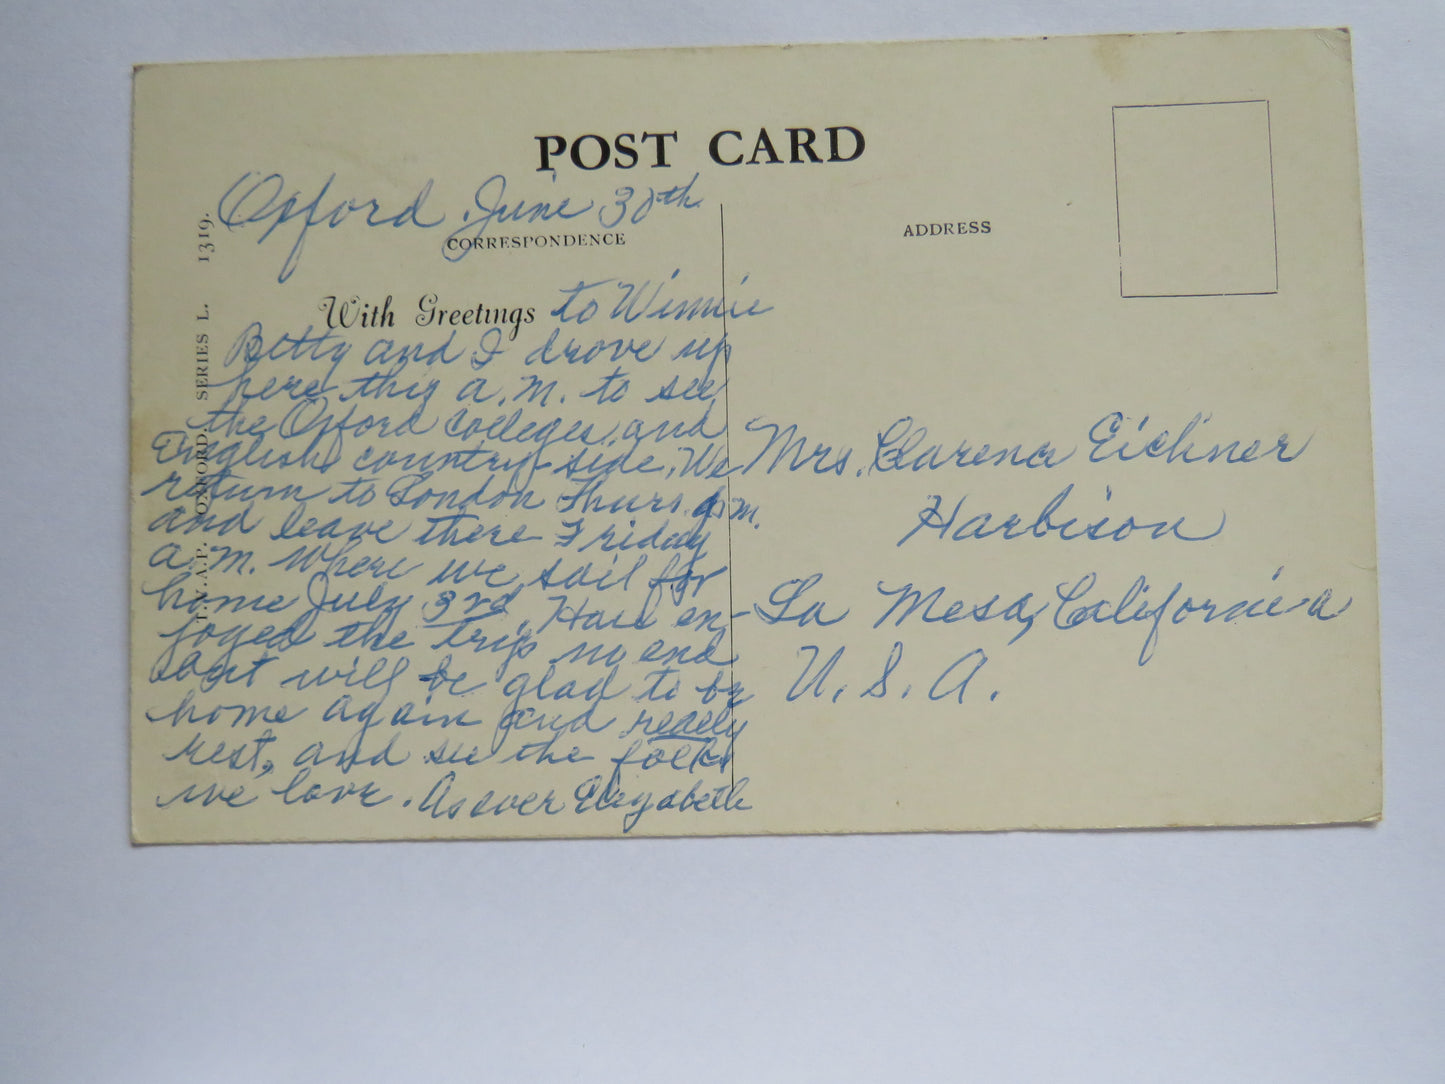 POST CARD
Oxford June 30th
CORRESPONDENCE
With Greetings to Winnie
Betty and I drove up
here this a.m. to see
the Oxford Colleges and
English country-side. We
return to London Thurs. p.m.
and leave there Friday
a.m. where we sail for
home July 3rd. Have en-
joyed the trip no end
but will be glad to be
home again and really
rest, and see the folks
we love. As ever Elizabeth
T.V.A.P. OXFORD. SERIES L. 1319.
ADDRESS
Mrs. Clarence Eichner
Harbison
La Mesa, California
U.S.A.